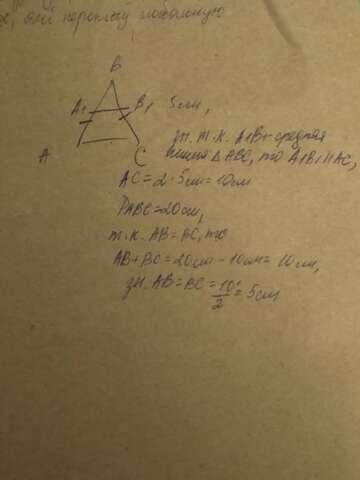 B
A₁ B₁ 5см,
A C
т.к. A₁B₁ средняя
линия ΔABC, то A₁B₁||AC,
AC=2·5см=10см
PABC=20см,
т.к. AB=AC, то
AB+BC=20см-10см=10см,
зн. AB=BC=10/2=5см